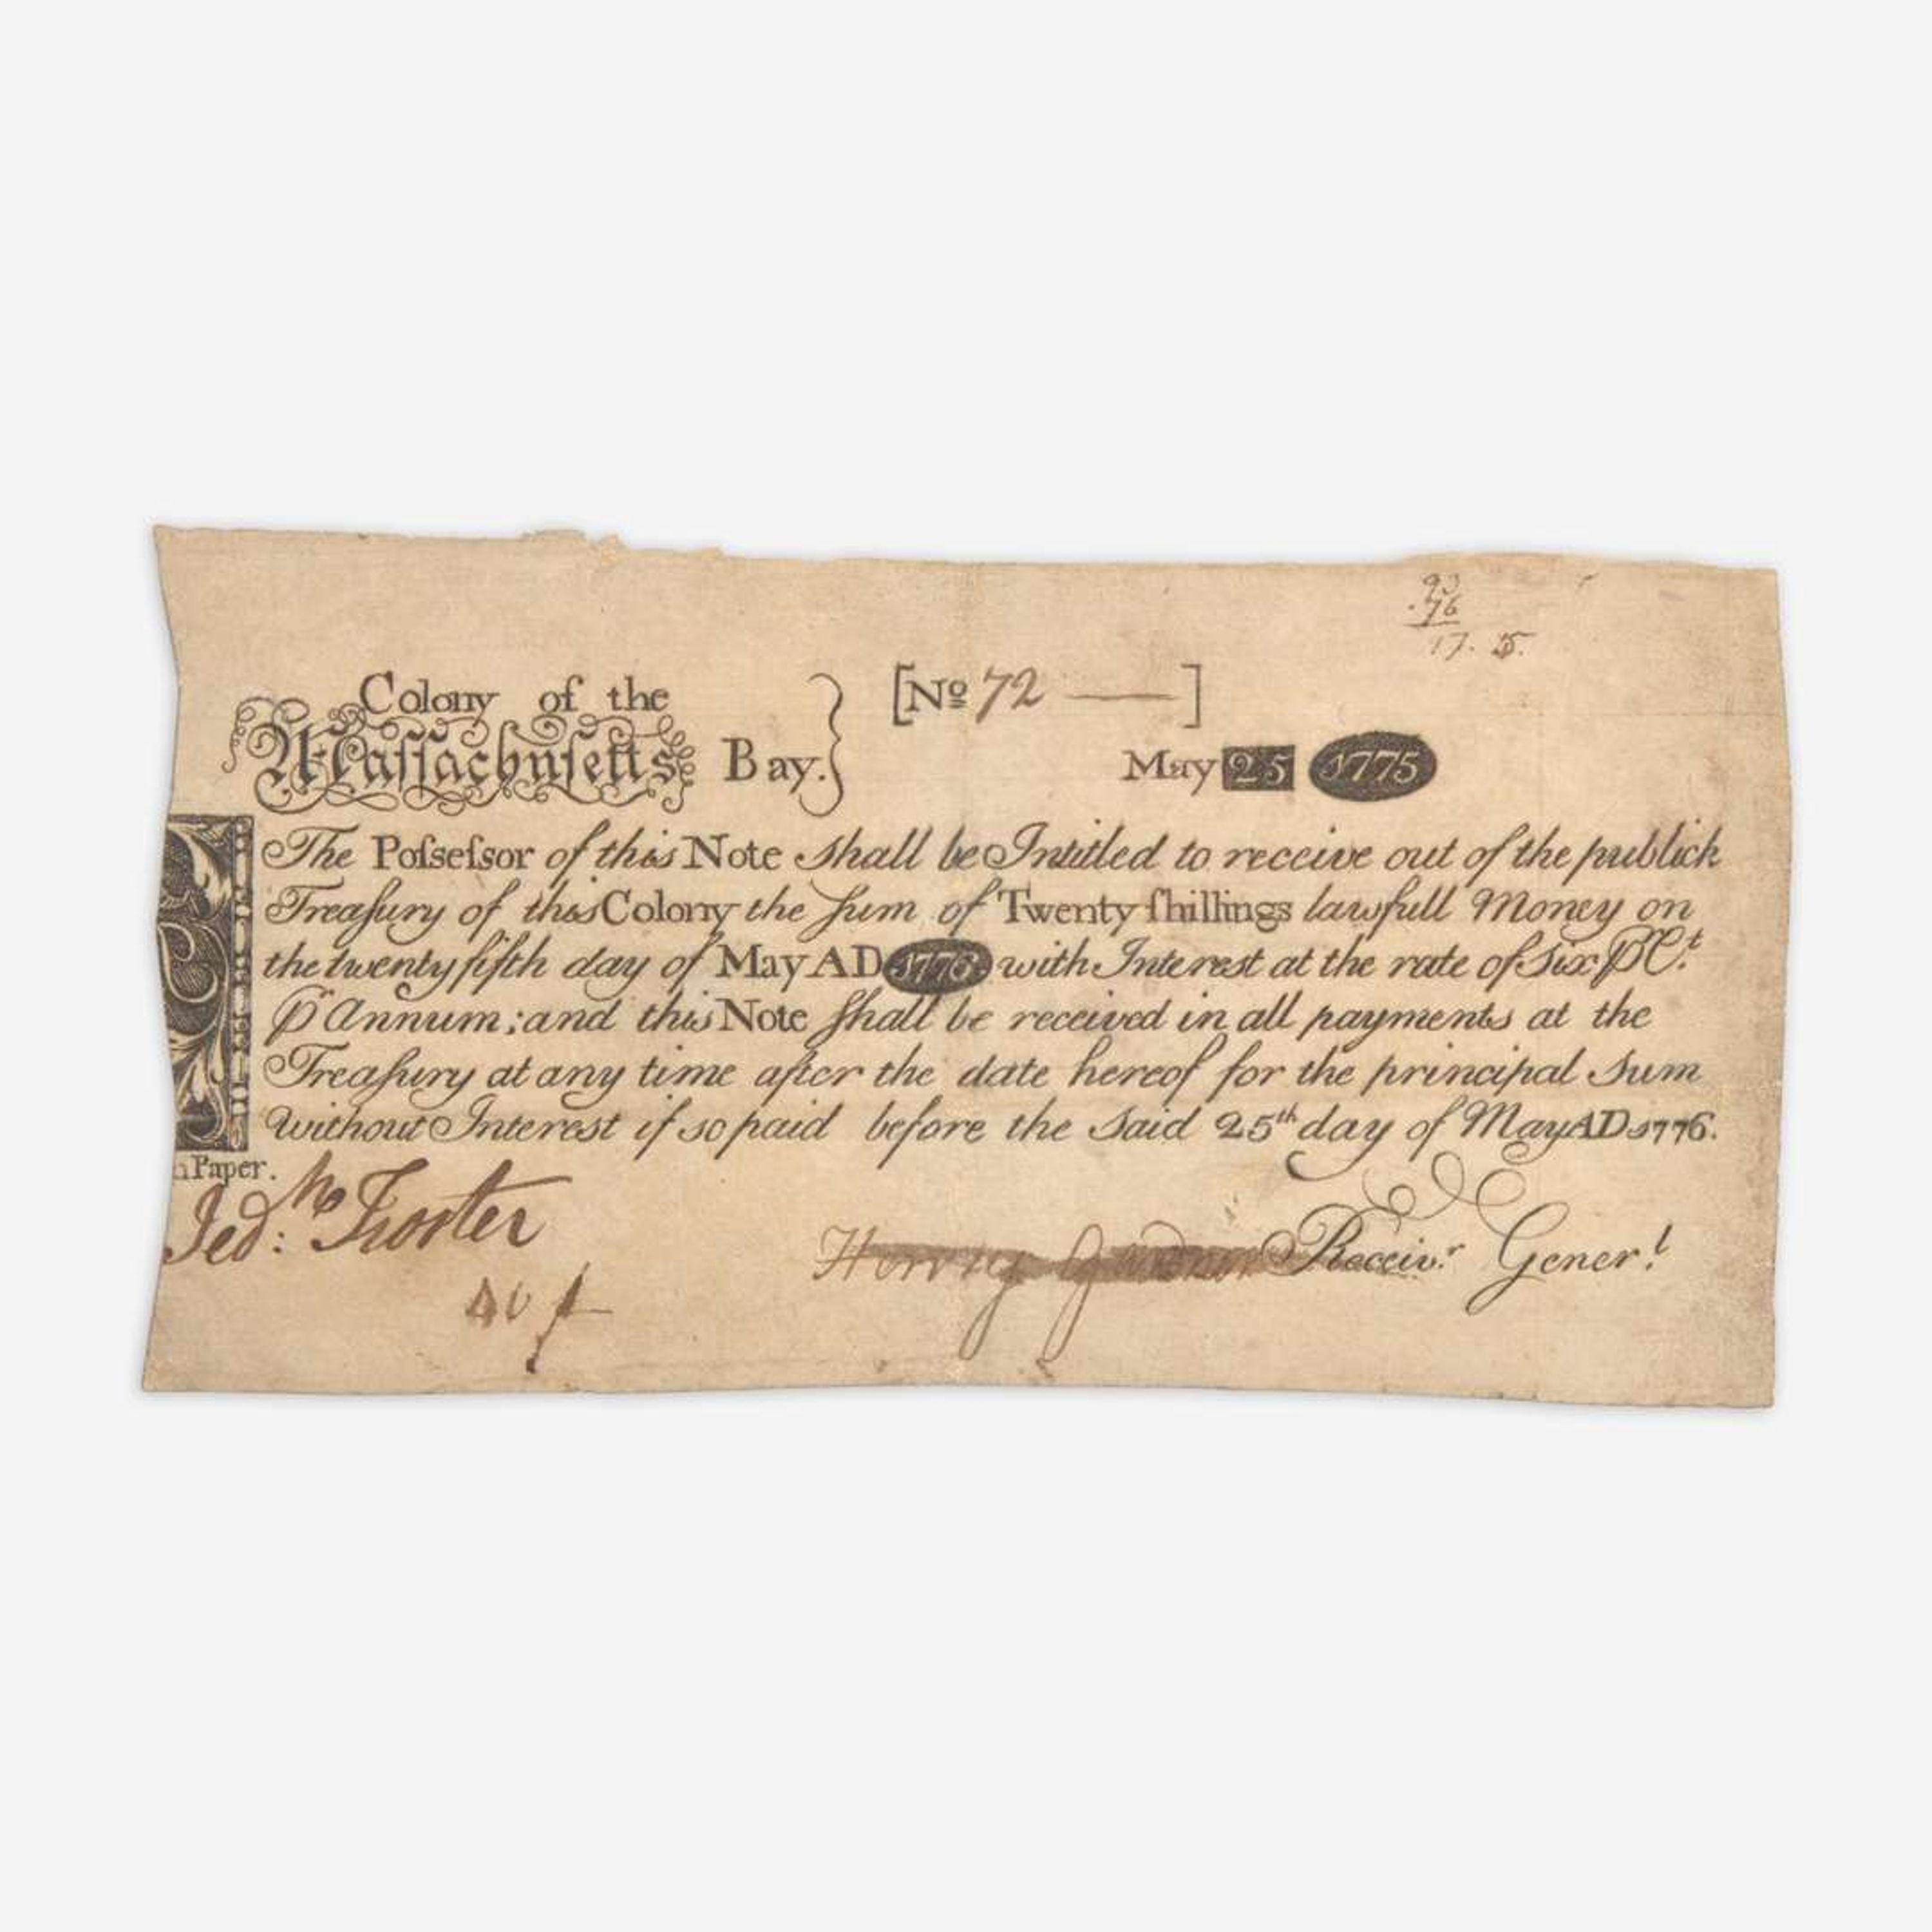 93
76
17. 5.
Colony of the
Maſſachuſetts Bay.
[No 72 —]
May 25 1775
The Poſseſsor of this Note shall be Intitled to receive out of the publick
Treaſury of this Colony the ſum of Twenty ſhillings lawfull Money on
the twenty fifth day of May AD 1776 with Interest at the rate of Six Pr Ct.
Pr Annum; and this Note ſhall be received in all payments at the
Treaſury at any time after the date hereof for the principal Sum
without Interest if so paid before the Said 25th day of May AD 1776.
Paper.
Jedh: Foster
Henry Gardner Receivr. Generl.